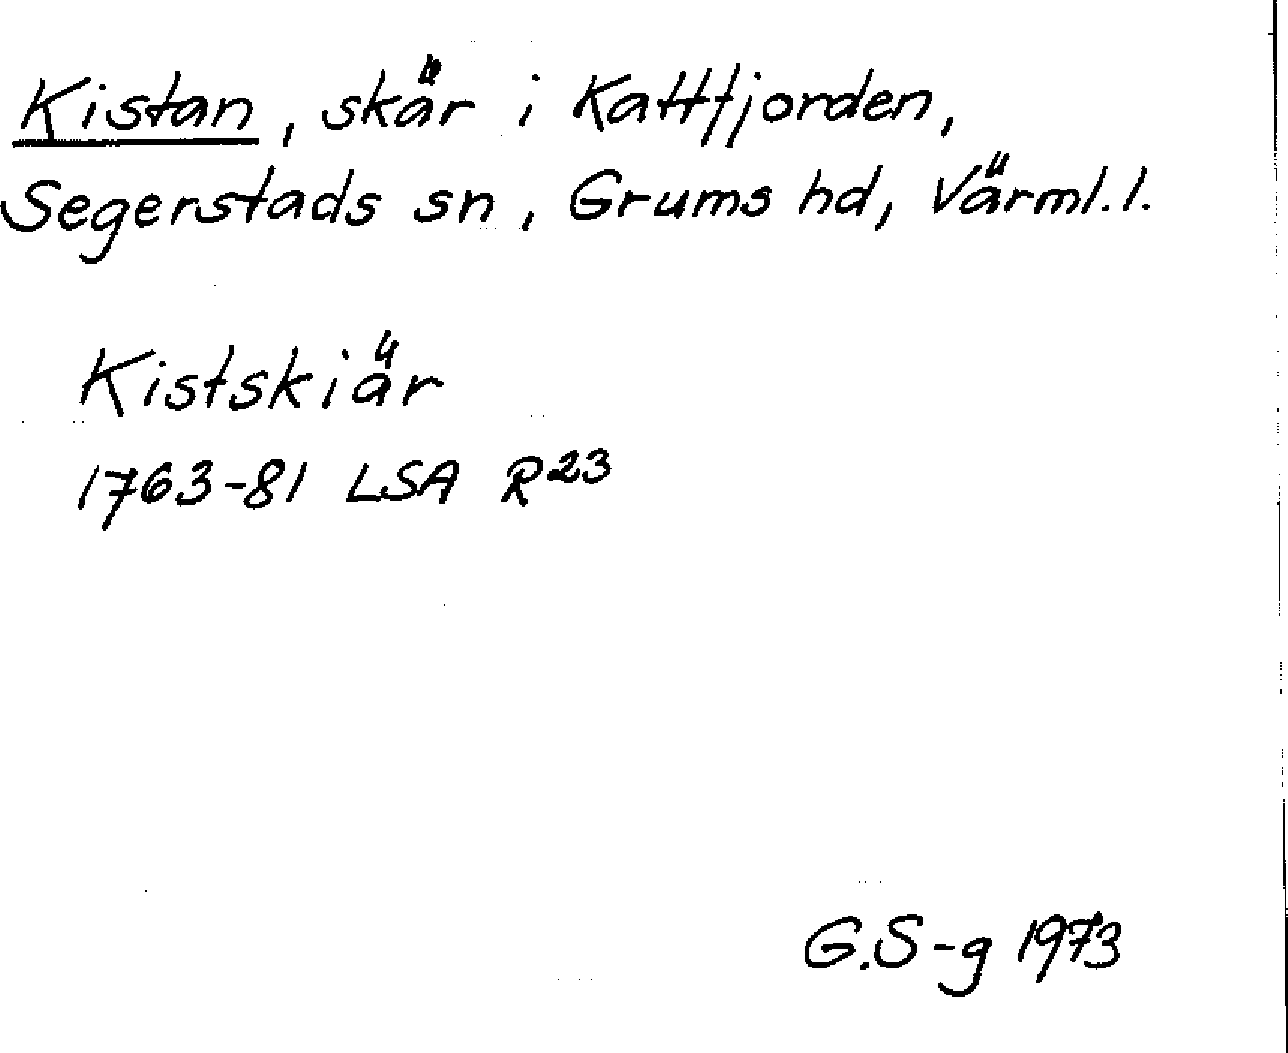 Kistan, skär i Kattfjorden,
Segerstads sn, Grums hd, Värml. l.
Kistskiär
1763-81 LSA R23
G.S-g 1973